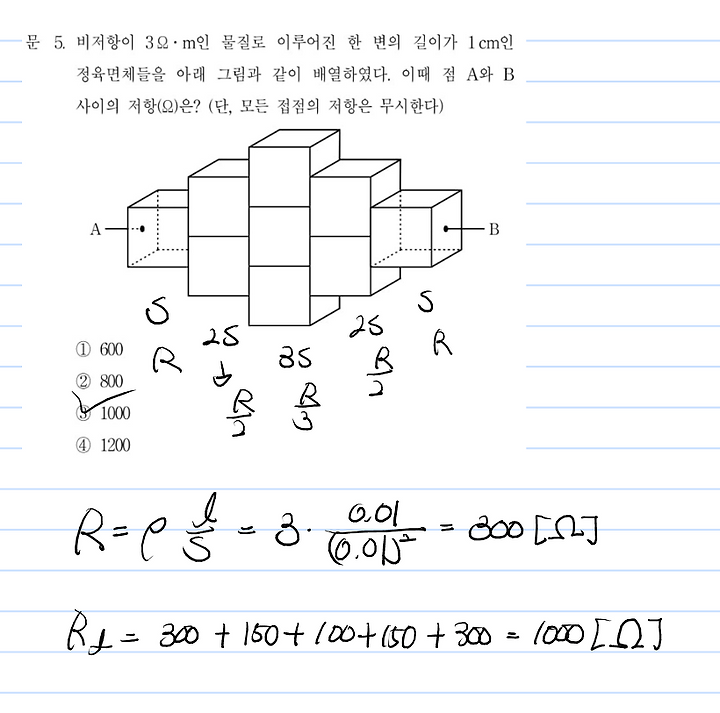 문 5. 비저항이 3Ω·m인 물질로 이루어진 한 변의 길이가 1cm인
정육면체들을 아래 그림과 같이 배열하였다. 이때 점 A와 B
사이의 저항(Ω)은? (단, 모든 접점의 저항은 무시한다)
A
B
S
2S
3S
2S
S
R
R/2
R/3
R/2
R
① 600
② 800
③ 1000
④ 1200
R = ρ l/S = 3 · 0.01/(0.01)² = 300 [Ω]
= 300 + 150 + 100 + 150 + 300 = 1000 [Ω]